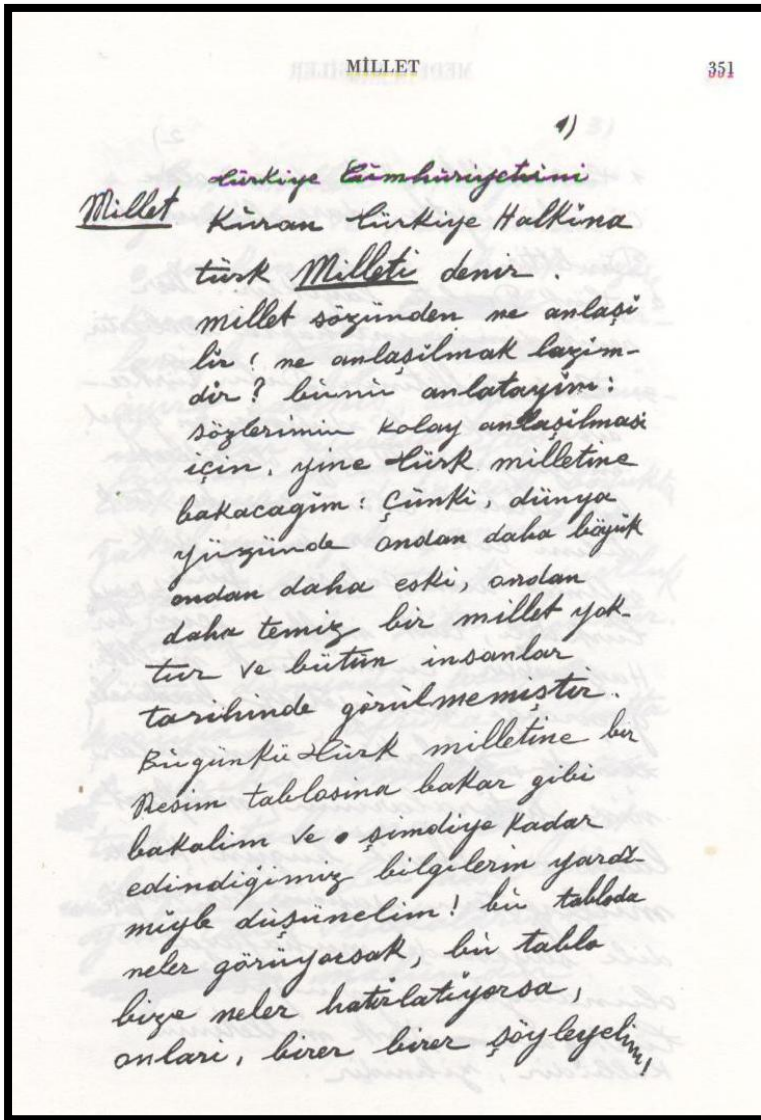 MİLLET 351
1)
türkiye Cümhüriyetini
Millet Kuran türkiye Halkına
türk Milleti denir.
millet sözünden ne anlaşi
lir! ne anlaşilmak lazim-
dir? bunu anlatayim:
sözlerimin kolay anlaşilmasi
için, yine türk milletine
bakacağim: Çünki, dünya
yüzünde ondan daha böyük
ondan daha eski, ondan
daha temiz bir millet yok-
tur ve bütün insanlar
tarihinde görülmemiştir.
Bugünkü türk milletine bir
Resim tablosina bakar gibi
bakalim ve şimdiye Kadar
edindiğimiz bilgilerin yardı-
miyle düşünelim! bu tabloda
neler görüyorsak, bu tablo
bize neler hatırlatıyorsa,
onlari, birer birer şöyleyelim!